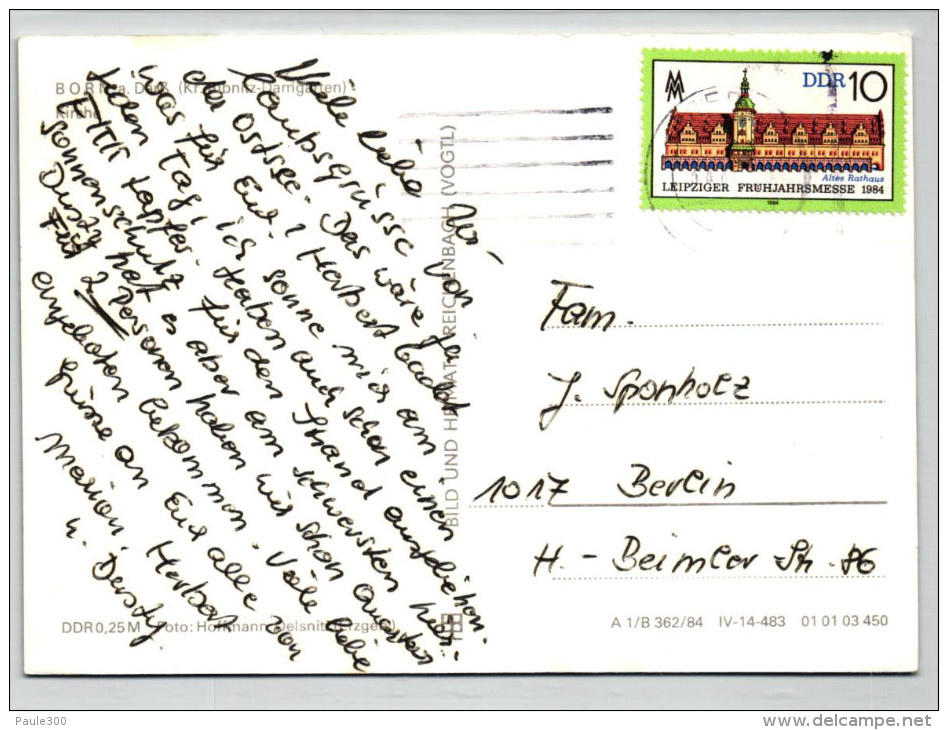 BORN a. Darß (Kr. Ribnitz-Damgarten)
Kirche
Viele liebe
Urlaubsgrüsse von
der Ostsee. Das wäre ja
was für Euch! Herbert badet
jeden Tag, ich sonne mich am
FKK Haben auch schon einen
tapfer. für den Strand
Sonnenschutz
Dusty hat es aber am schwersten hier.
Für 2 Personen haben wir schon Quartier
angeboten bekommen. Viele liebe
Grüsse an Euch alle von
Marion, Herbert
u. Dusty.
BILD UND HEIMAT REICHENBACH (VOGTL)
DDR 10
Altes Rathaus
LEIPZIGER FRÜHJAHRSMESSE 1984
1984
Fam.
J. Sponholz
1017 Berlin
H. - Beimler-Str. 86
DDR 0,25 M Foto: Hoffmann, Oelsnitz (Erzgeb.)
A 1/B 362/84 IV-14-483 01 01 03 450
Paule300
www.delcampe.net